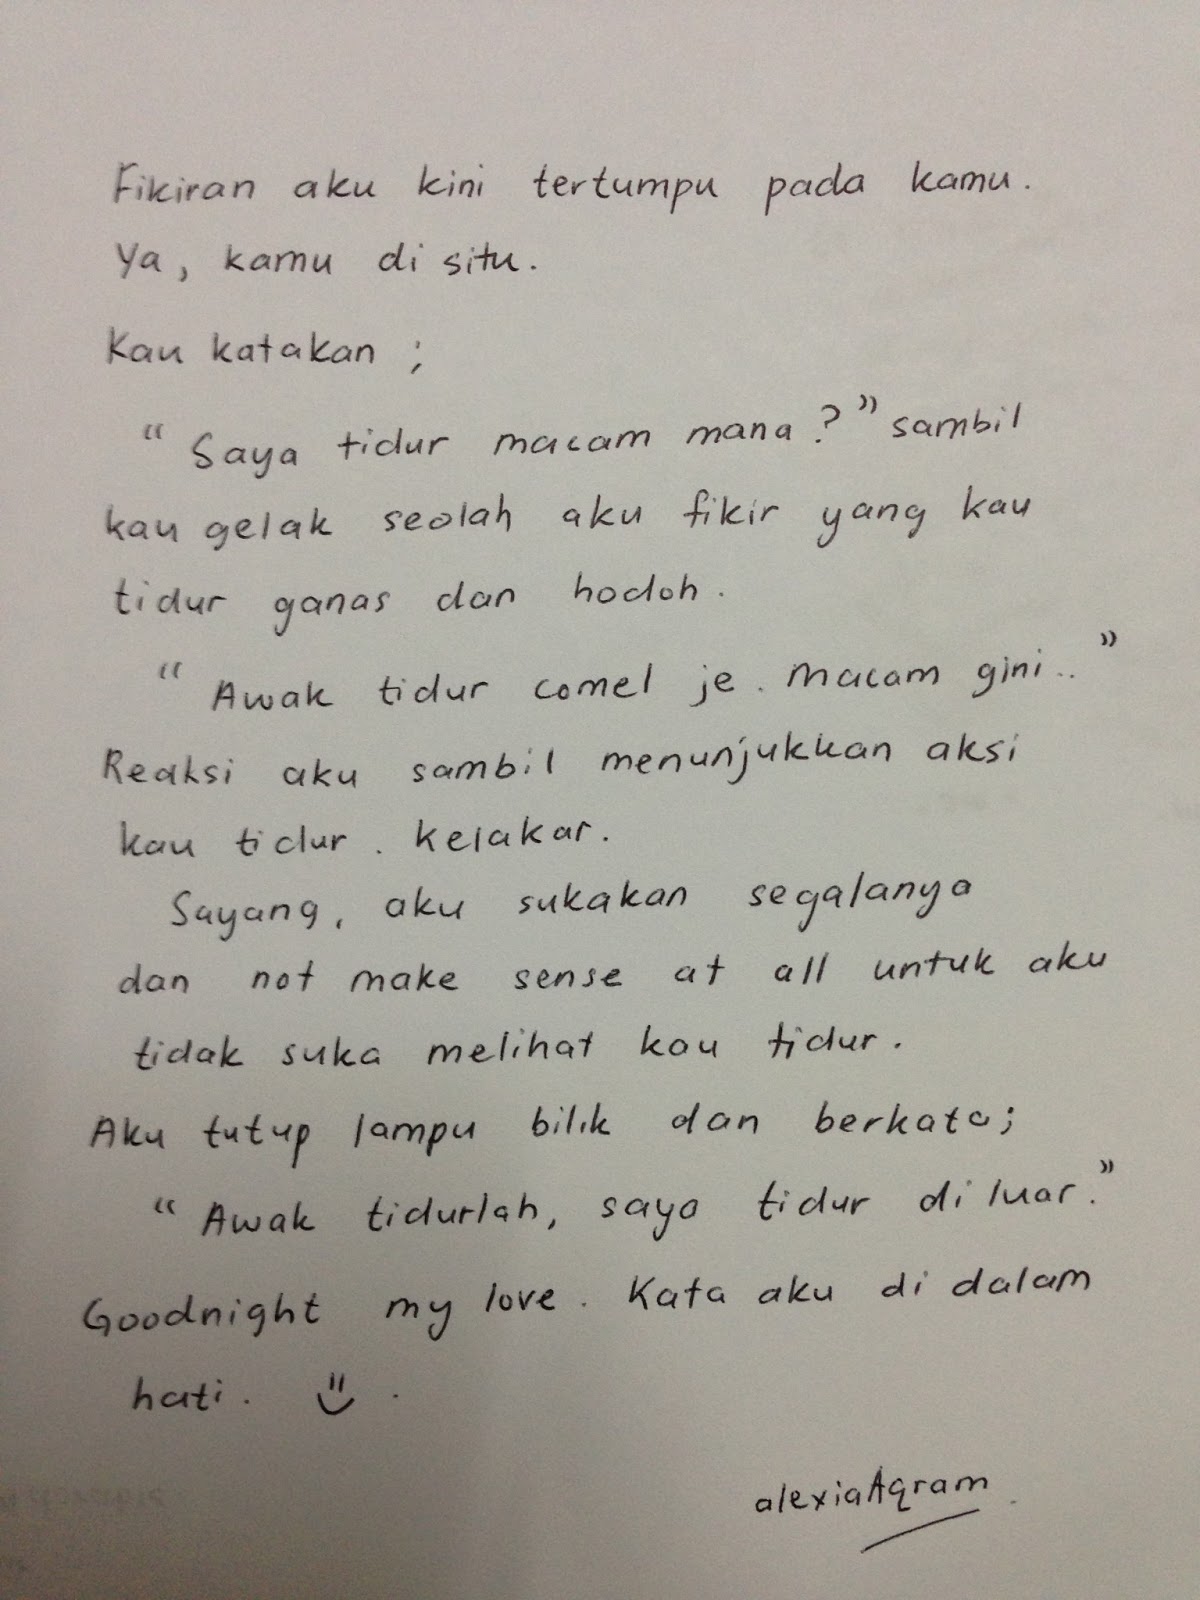 Fikiran aku kini tertumpu pada kamu.
Ya, kamu di situ.
Kau katakan ;
" Saya tidur macam mana ? " sambil
kau gelak seolah aku fikir yang kau
tidur ganas dan hodoh .
" Awak tidur comel je . Macam gini .. "
Reaksi aku sambil menunjukkan aksi
kau tidur . Kelakar .
Sayang , aku sukakan segalanya
dan not make sense at all untuk aku
tidak suka melihat kau tidur .
Aku tutup lampu bilik dan berkata ;
" Awak tidurlah , saya tidur di luar . "
Goodnight my love . Kata aku di dalam
hati . .
alexiaAqram .